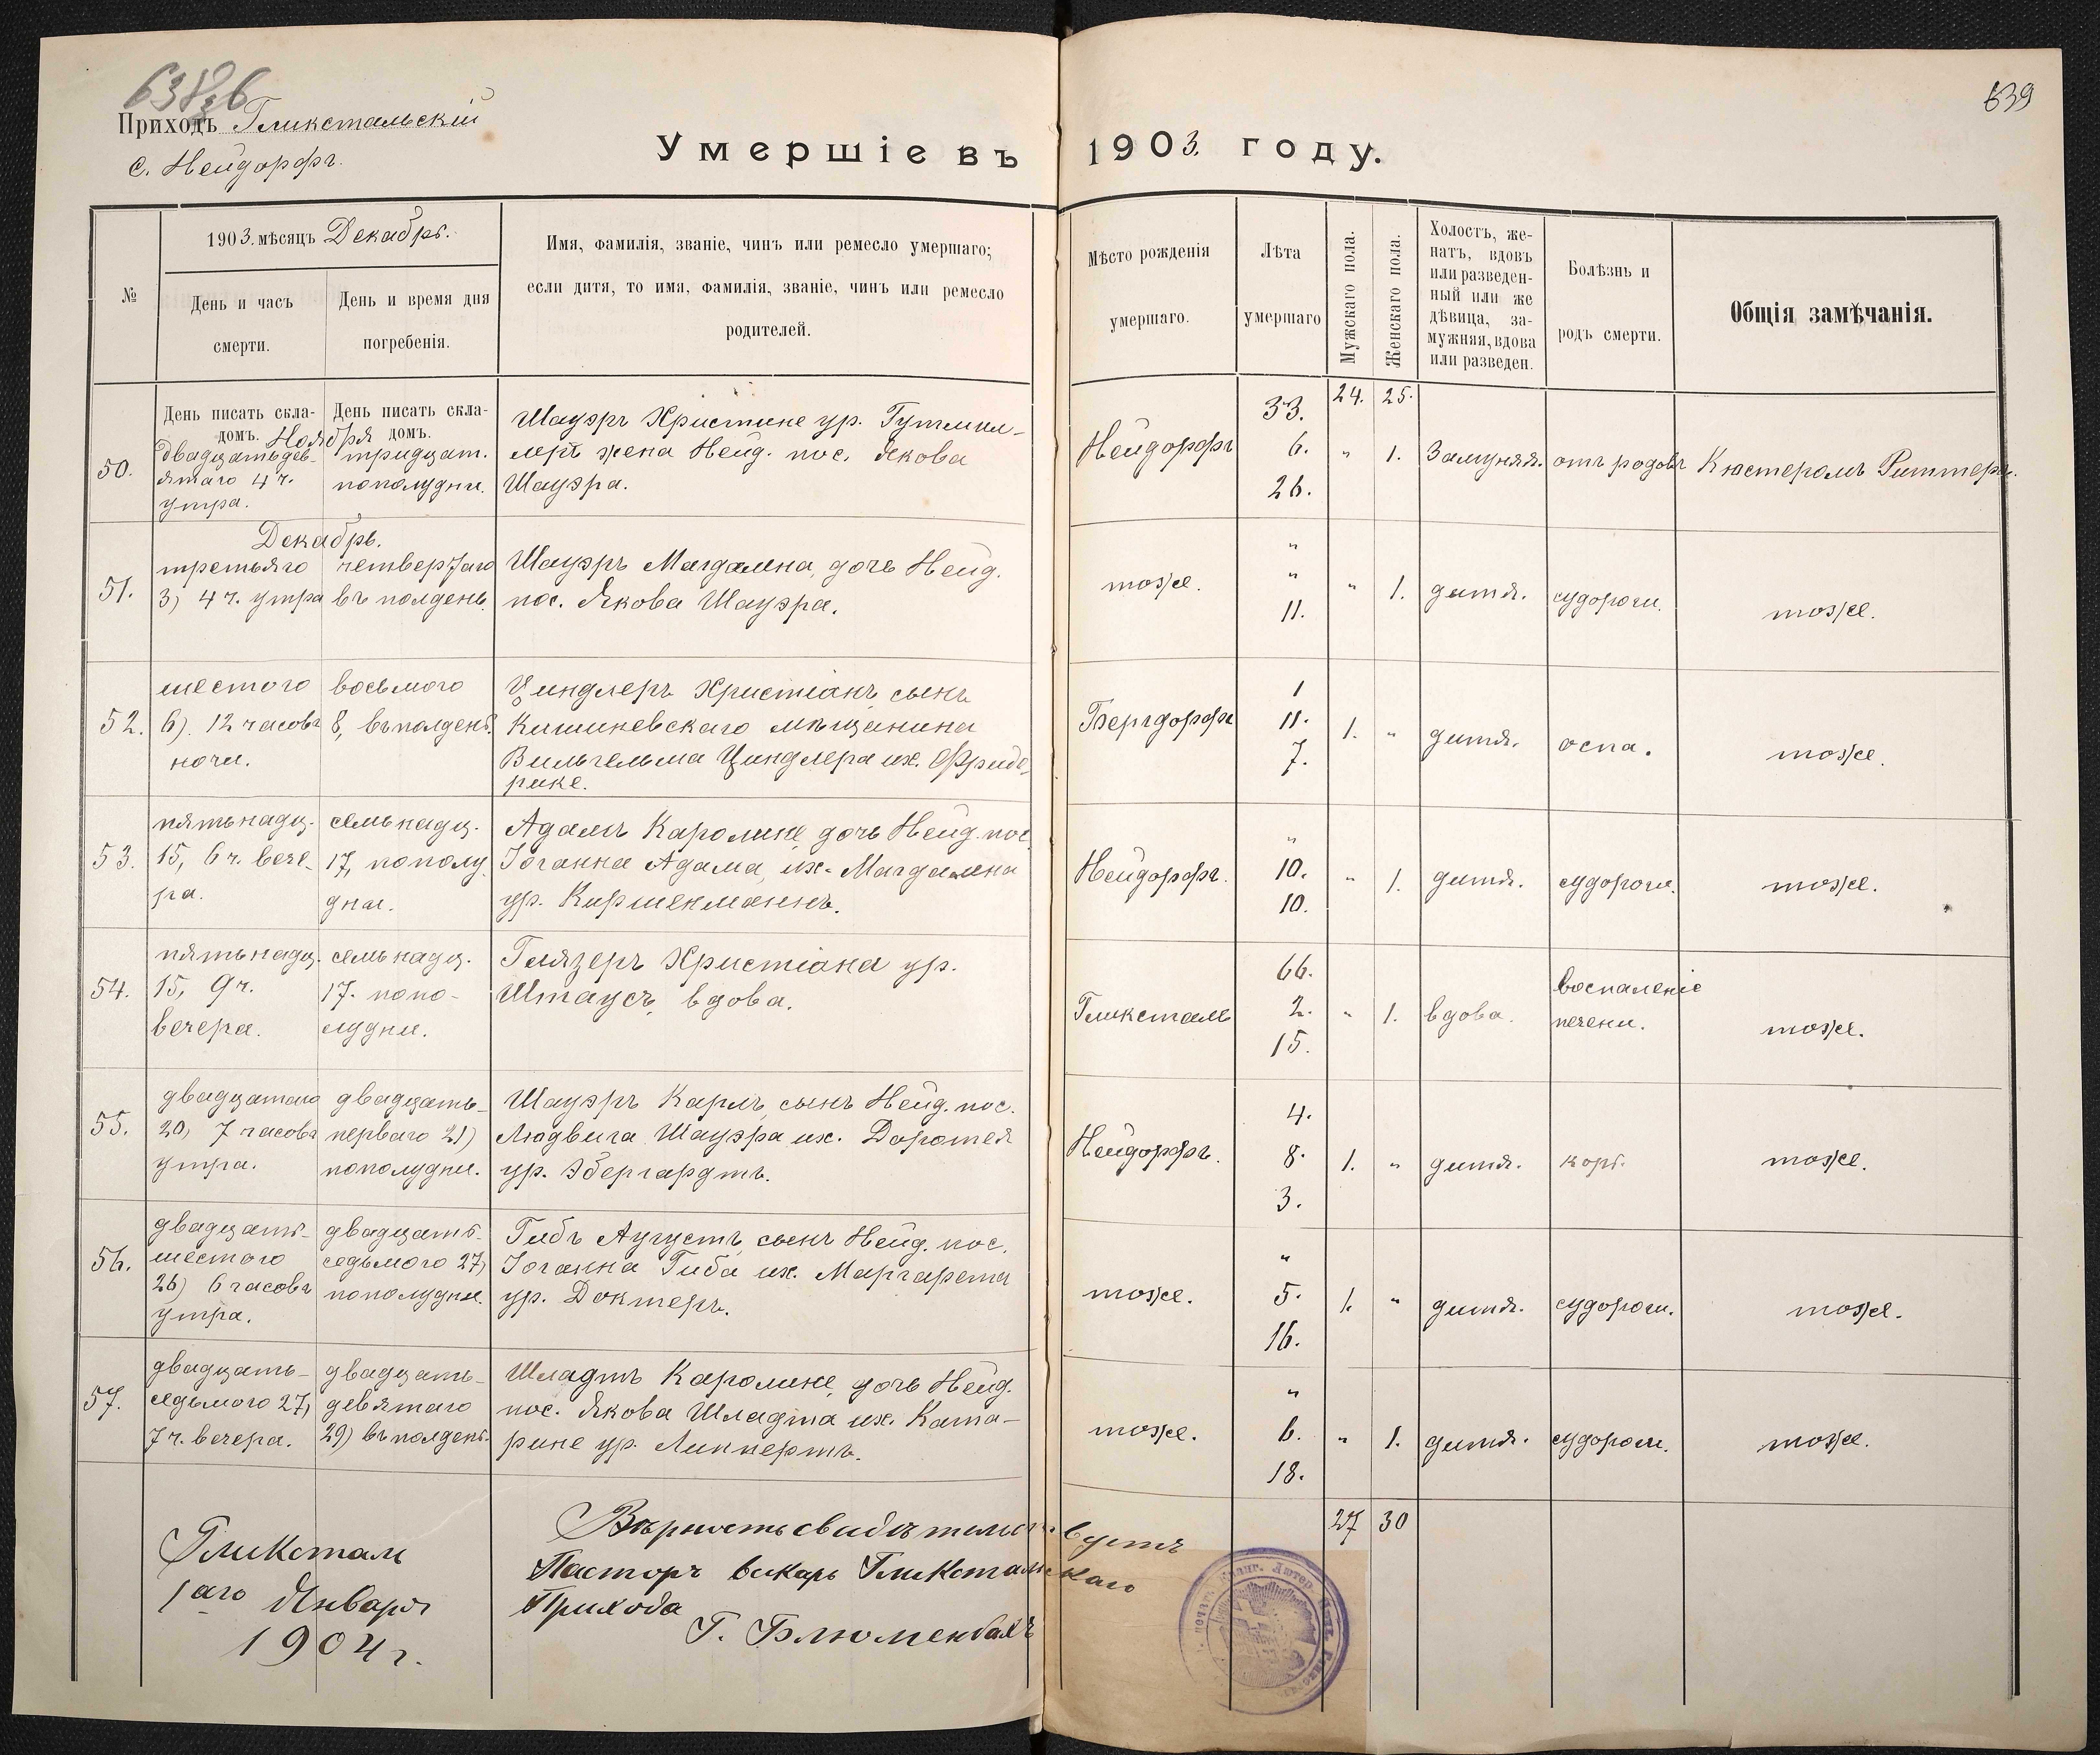 638зб
639
Приходъ Гликстальскій
с. Нейдорфъ.
Умершіе въ 1903. году.
№
1903. мѣсяцъ Декабрь.
День и часъ смерти.
День и время дня погребенія.
Имя, фамилія, званіе, чинъ или ремесло умершаго;
если дитя, то имя, фамилія, званіе, чинъ или ремесло
родителей.
Мѣсто рожденія
умершаго.
Лѣта
умершаго
Мужскаго пола.
Женскаго пола.
Холостъ, же-
натъ, вдовъ
или разведен-
ный или же
дѣвица, за-
мужняя, вдова
или разведен.
Болѣзнь и
родъ смерти.
Общія замѣчанія.
День писать скла-
домъ.
День писать скла-
домъ.
24. 25.
Ноября
50.
двадцатьдев-
ятаго 4 ч.
утра.
тридцат.
пополудни.
Шауэръ Христине ур. Гутмил-
леръ жена Нейд. пос. Якова
Шауэра.
Нейдорфъ
33.
6.
26.
" 1.
Замужняя.
отъ родовъ
Кюстеромъ Риттеръ.
Декабрь.
51.
третьяго
3) 4 ч. утра
четвертаго
въ полдень.
Шауэръ Магдалена, дочь Нейд.
пос. Якова Шауэра.
тоже.
"
"
11.
" 1.
дитя.
судороги.
тоже.
52.
шестого
6). 12 часовъ
ночи.
восьмого
8, въ полдень.
Циндлеръ Христіанъ, сынъ
Кишиневскаго мѣщанина
Вильгельма Циндлера иж. Фриде-
рике.
Бергдорфъ
1
11.
7.
1. "
дитя.
оспа.
тоже.
53.
пятьнадц.
15, 6 ч. вече-
ра.
семьнадц.
17, пополу
дни.
Адамъ Каролине, дочь Нейд. пос.
Іоганна Адама, иж. Магдалена
ур. Киршенманнъ.
Нейдорфъ.
"
10.
10.
" 1.
дитя.
судороги.
тоже.
54.
пятьнадц.
15, 9 ч.
вечера.
семьнадц.
17. попо-
лудни.
Глязеръ Христіана ур.
Штаусъ, вдова.
Гликсталь
66.
2.
15.
" 1.
вдова.
воспаленіе
печени.
тоже.
55.
двадцатаго
20, 7 часовъ
утра.
двадцать-
перваго 21)
пополудни.
Шауэръ Карлъ, сынъ Нейд. пос.
Людвига Шауэра иж. Доротея
ур. Эбергардтъ.
Нейдорфъ.
4.
8.
3.
1. "
дитя.
корь.
тоже.
56.
двадцать-
шестого
26) 6 часовъ
утра.
двадцать-
седьмого 27)
пополудни.
Гибъ Аугустъ, сынъ Нейд. пос.
Іоганна Гиба иж. Маргарета
ур. Доктеръ.
тоже.
"
5.
16.
1. "
дитя.
судороги.
тоже.
57.
двадцать-
седьмого 27,
7 ч. вечера.
двадцать-
девятаго
29) въ полдень.
Шладтъ Каролине, дочь Нейд.
пос. Якова Шладта иж. Ката-
рине ур. Липпертъ.
тоже.
"
6.
18.
" 1.
дитя.
судороги.
тоже.
27 30
Гликсталь
1аго Января
1904 г.
Вѣрность свидѣтельствуетъ
Пасторъ викарь Гликстальскаго
Прихода
Г. Блюменбахъ